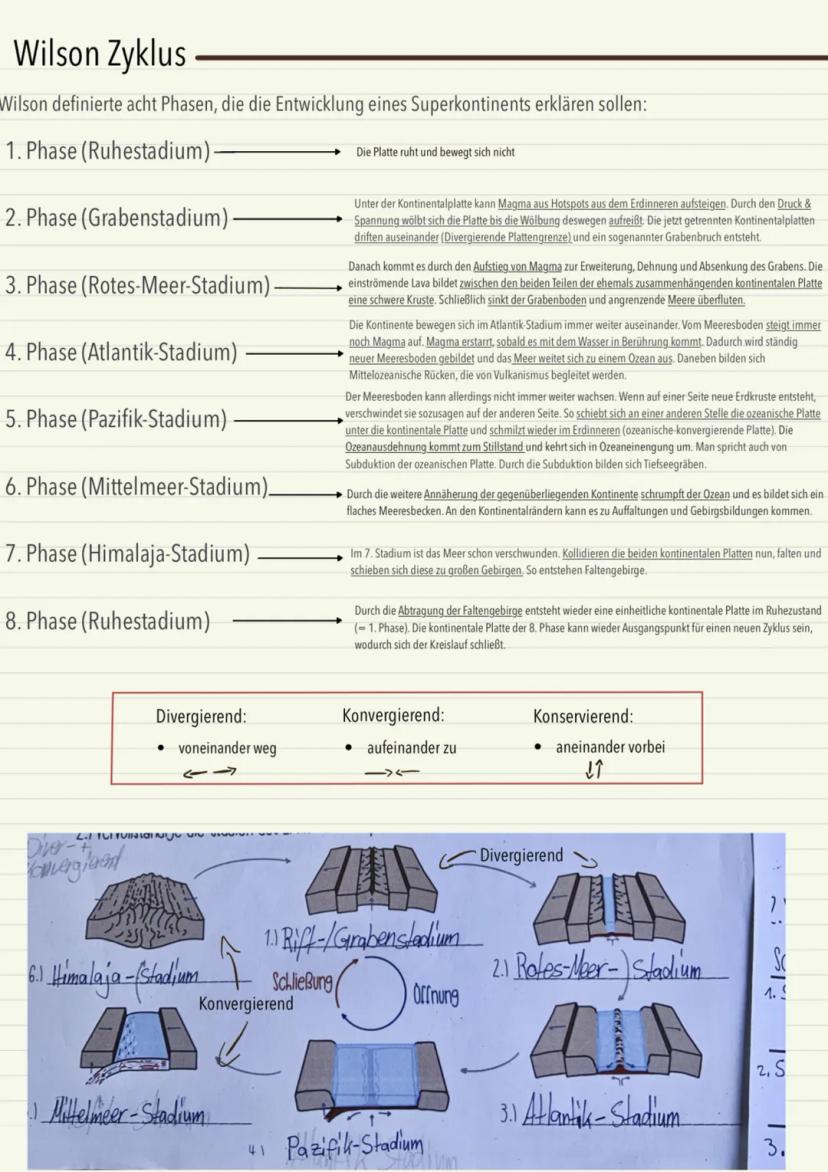 Wilson Zyklus
Wilson definierte acht Phasen, die die Entwicklung eines Superkontinents erklären sollen:
1. Phase (Ruhestadium)
Die Platte ruht und bewegt sich nicht
2. Phase (Grabenstadium)
Unter der Kontinentalplatte kann Magma aus Hotspots aus dem Erdinneren aufsteigen. Durch den Druck &
Spannung wölbt sich die Platte bis die Wölbung deswegen aufreißt. Die jetzt getrennten Kontinentalplatten
driften auseinander (Divergierende Plattengrenze) und ein sogenannter Grabenbruch entsteht.
3. Phase (Rotes-Meer-Stadium)
Danach kommt es durch den Aufstieg von Magma zur Erweiterung, Dehnung und Absenkung des Grabens. Die
einströmende Lava bildet zwischen den beiden Teilen der ehemals zusammenhängenden kontinentalen Platte
eine schwere Kruste. Schließlich sinkt der Grabenboden und angrenzende Meere überfluten.
4. Phase (Atlantik-Stadium)
Die Kontinente bewegen sich im Atlantik-Stadium immer weiter auseinander. Vom Meeresboden steigt immer
noch Magma auf. Magma erstarrt, sobald es mit dem Wasser in Berührung kommt. Dadurch wird ständig
neuer Meeresboden gebildet und das Meer weitet sich zu einem Ozean aus. Daneben bilden sich
Mittelozeanische Rücken, die von Vulkanismus begleitet werden.
5. Phase (Pazifik-Stadium)
Der Meeresboden kann allerdings nicht immer weiter wachsen. Wenn auf einer Seite neue Erdkruste entsteht,
verschwindet sie sozusagen auf der anderen Seite. So schiebt sich an einer anderen Stelle die ozeanische Platte
unter die kontinentale Platte und schmilzt wieder im Erdinneren (ozeanische-konvergierende Platte). Die
Ozeanausdehnung kommt zum Stillstand und kehrt sich in Ozeaneinengung um. Man spricht auch von
Subduktion der ozeanischen Platte. Durch die Subduktion bilden sich Tiefseegräben.
6. Phase (Mittelmeer-Stadium)
Durch die weitere Annäherung der gegenüberliegenden Kontinente schrumpft der Ozean und es bildet sich ein
flaches Meeresbecken. An den Kontinentalrändern kann es zu Auffaltungen und Gebirgsbildungen kommen.
7. Phase (Himalaja-Stadium)
Im 7. Stadium ist das Meer schon verschwunden. Kollidieren die beiden kontinentalen Platten nun, falten und
schieben sich diese zu großen Gebirgen. So entstehen Faltengebirge.
8. Phase (Ruhestadium)
Durch die Abtragung der Faltengebirge entsteht wieder eine einheitliche kontinentale Platte im Ruhezustand
(= 1. Phase). Die kontinentale Platte der 8. Phase kann wieder Ausgangspunkt für einen neuen Zyklus sein,
wodurch sich der Kreislauf schließt.
Divergierend:
• voneinander weg
Konvergierend:
• aufeinander zu
Konservierend:
• aneinander vorbei
Diver- +
konvergierend
Divergierend
1.) Rift-/Grabenstadium
6.) Himalaja-(Stadium
2.) Rotes-Meer-)Stadium
Schließung
Öffnung
Konvergierend
.) Mittelmeer-Stadium
3.) Atlantik-Stadium
4) Pazifik-Stadium
1.
2.
3.